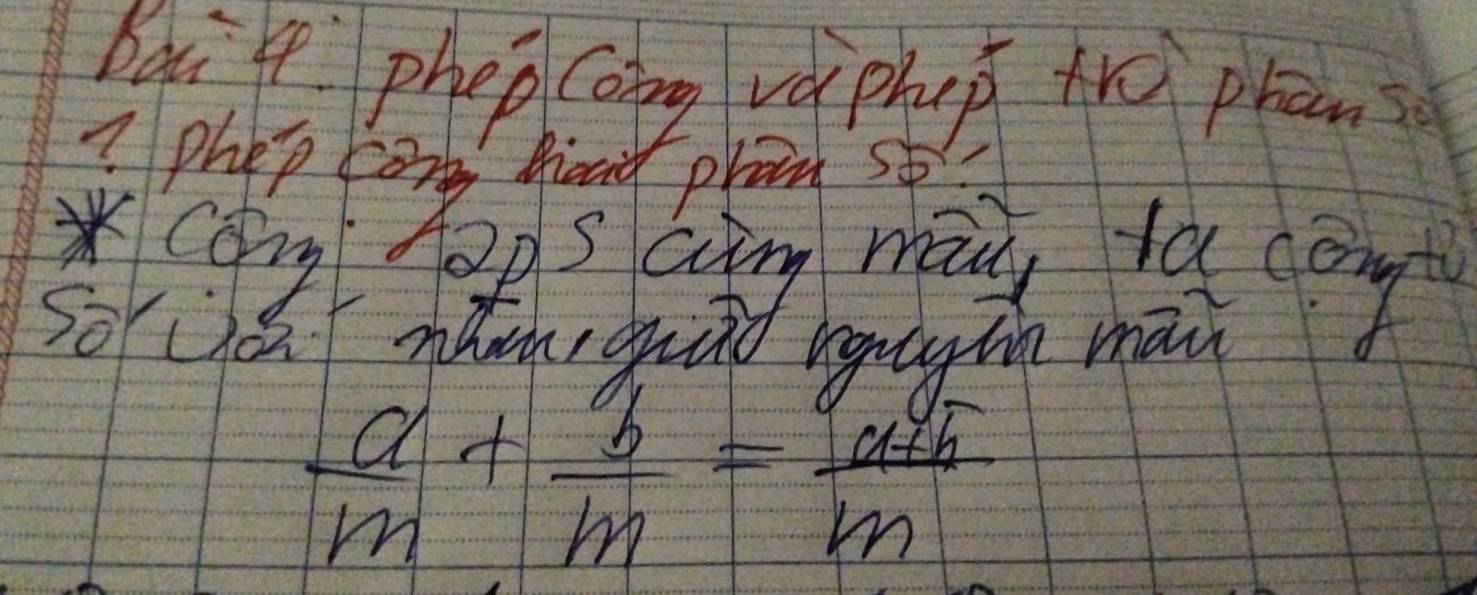 Bài 4: phép Cộng và phép trừ phân số
1. phép cộng hai phân số:
* Cộng 2 ps cùng mẫu, ta cộng tử
số với nhau, giữ nguyên mẫu
a/m + b/m = a+b/m